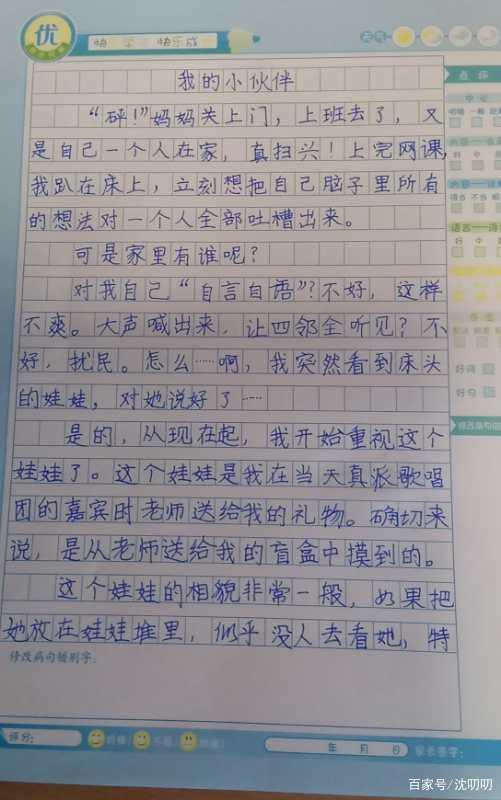 优
快 学 快乐成
天气
我的小伙伴
“砰！”妈妈关上门，上班去了，又
是自己一个人在家，真扫兴！上完网课，
我趴在床上，立刻想把自己脑子里所有
的想法对一个人全部吐槽出来。
可是家里有谁呢？
对我自己“自言自语”？不好，这样
不爽。大声喊出来，让四邻全听见？不
好，扰民。怎么……啊，我突然看到床头
的娃娃，对她说好了……
是的，从现在起，我开始重视这个
娃娃了。这个娃娃是我在当天真派歌唱
团的嘉宾时老师送给我的礼物。确切来
说，是从老师送给我的盲盒中摸到的。
这个娃娃的相貌非常一般，如果把
她放在娃娃堆里，似乎没人去看她，特
修改病句错别字：
点评
好词
好句
评分：
年 月 日
家长签字：
百家号/沈叨叨